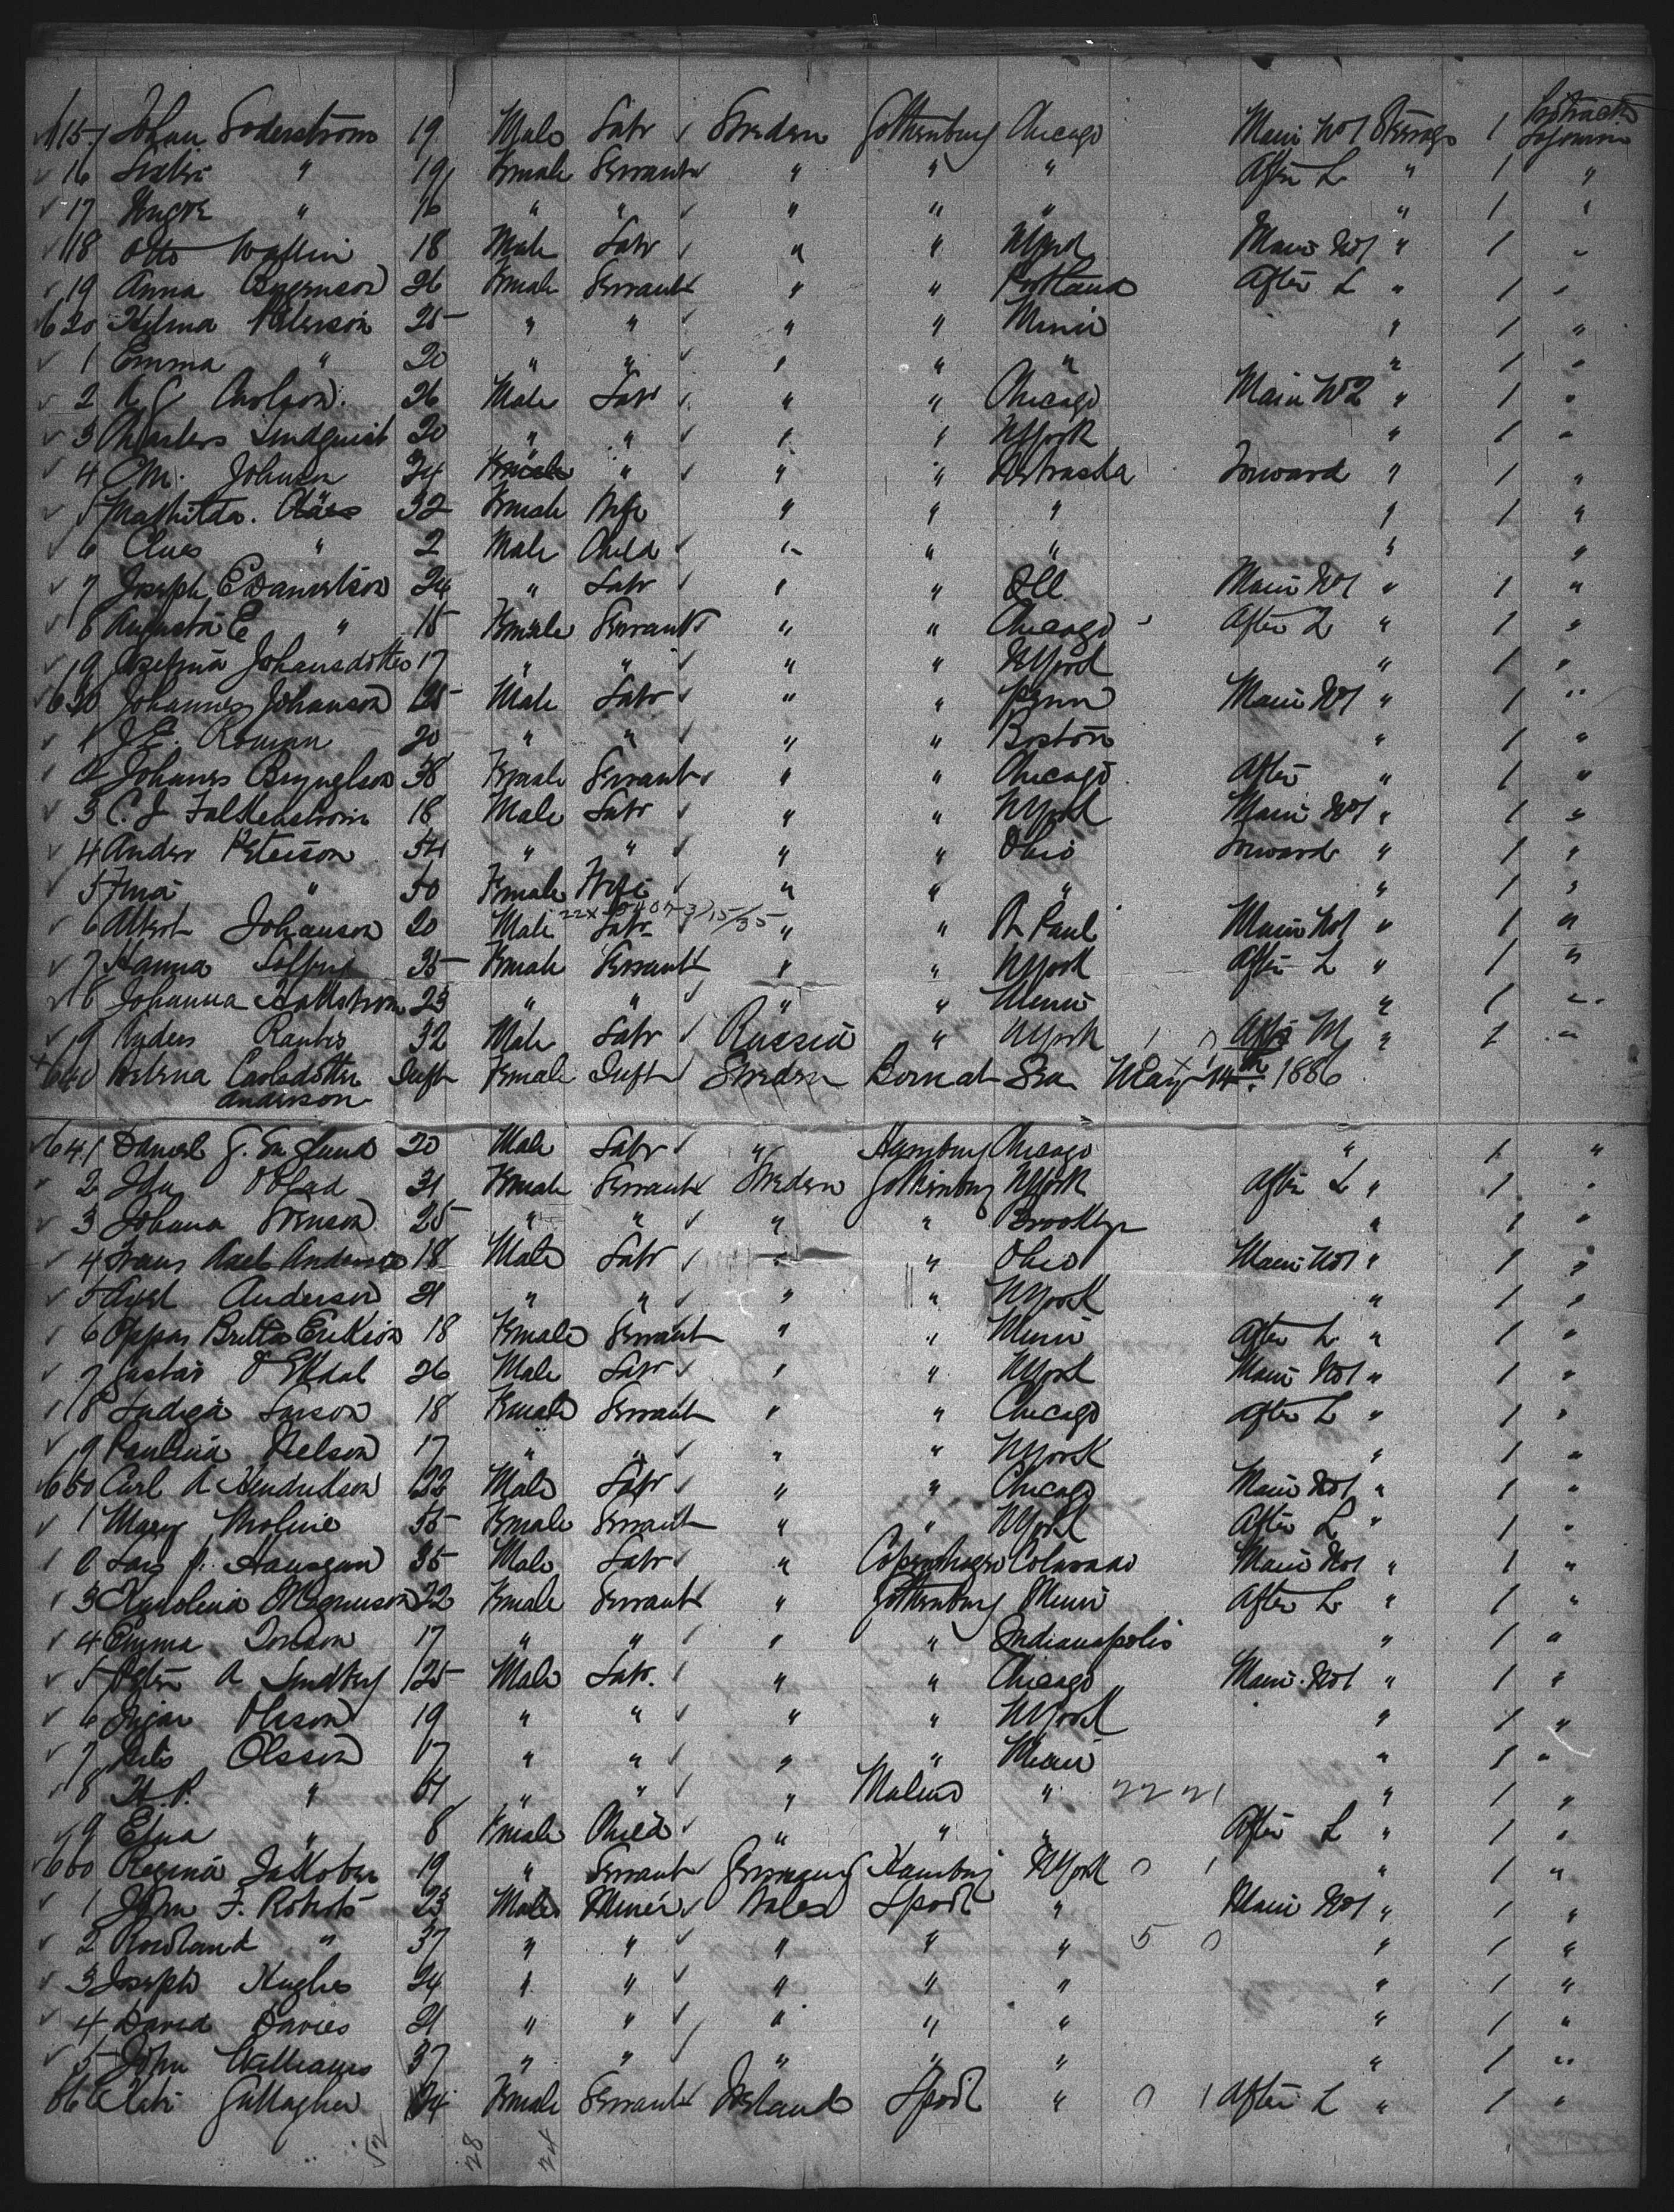 615 Johan Soderstrom 19 Male Labr Sweden Gothenburg Chicago Main No 1 Steerage 1 Protracted Sojourn
16 " 19 Female Servant " " " After L " 1 "
17 " 16 " " " " " " 1 "
18 Otto Wallin 18 Male Labr " " NYork Main No1 " 1 "
19 Anna 26 Female Servant " " Portland After L " 1 "
620 Hilma Peterson 25 " " " " Minn " 1 "
1 Emma " 20 " " " " " " 1 "
2 A G 26 Male Labr " " Chicago Main No 2 " 1 "
3 Charles Lindquist 20 " " " " NYork " 1 "
4 C M. Johnson 24 " " " Nebraska Forward " 1 "
5 Mathilda. Claes 32 Female Wife " " " " 1 "
6 Claes " 2 Male Child " " " " "
7 Joseph E Danielson 24 " Labr " " Ill Main No1 " 1 "
8 Augusta E " 18 Female Servant " " Chicago After L " 1 "
9 Josefina Johansdotter 17 " " " " NYork " 1 "
630 Johannes Johanson 25 Male Labr " " Penn Main No1 " 1 "
1 J E. Roman 20 " " " " Boston " 1 "
2 Johanes Bryngelson 38 Female Servant " " Chicago After " 1 "
3 C. J. Falkenstrom 18 Male Labr " " NYork Main No1 " 1 "
4 Ander Peterson 54 " " " " Ohio Forward " 1 "
5 " 50 Female Wife " " " " 1 "
22X-
6 Albert Johanson 20 Male Labr " " St Paul Main No1 " 1 "
7 Hanna 35 Female Servant " " NYork After L " 1 "
8 Johanna Hallstrom 23 " " " " Minn " 1 "
9 Anders 32 Male Labr Russia " NYork After M " 1 "
640 Carlsdotter Inft Female Inft Sweden Born at Sea May 14th 1886
Anderson
641 Daniel G. England 20 Male Labr " Hamburg Chicago " 1 "
2 Ida 31 Female Servant Sweden Gothenburg NYork After L " 1 "
3 Johana Svenson 25 " " " " Brooklyn " 1 "
4 Frans Axel Anderson 18 Male Labr " " Ohio Main No1 " 1 "
5 Axel Anderson 21 " " " " NYork " 1 "
6 Britta Erikson 18 Female Servant " " Minn After L " 1 "
7 Gustav O Ekdal 26 Male Labr " " NYork Main No1 " 1 "
8 Larson 18 Female Servant " " Chicago After L " 1 "
9 Paulina Nelson 17 " " " " NYork " 1 "
650 Carl A Hendrikson 22 Male Labr " " Chicago Main No1 " 1 "
1 Mary Moline 35 Female Servant " " NYork After L " 1 "
2 Lars P. 35 Male Labr " Copenhagen Colorado Main No1 " 1 "
3 Karolina Magnuson 22 Female Servant " Gothenburg Minn After L " 1 "
4 Emma 17 " " " " Indianapolis " 1 "
5 A Lindberg 25 Male Labr. " " Chicago Main No1 " 1 "
6 Olsson 19 " " " " NYork " 1 "
7 Olsson 17 " " " " Minn " 1 "
8 " " " " Malmo " 22 21 " 1 "
9 Elna " 8 Female Child " " " After L " 1 "
660 Regina Jakober 19 " Servant Germany Hamburg NYork 0 1 " 1 "
1 John F. Roberts 23 Male Miner Wales Lpool " Main No1 " 1 "
2 Rowland " 37 " " " " " 5 0 " 1 "
3 Joseph Hughes 24 " " " " " " 1 "
4 David Davies 21 " " " " " " 1 "
5 John Williams 37 " " " " " " 1 "
666 Kate Gallagher 24 Female Servant Ireland Lpool " 0 1 After L " 1 "
52 28 24